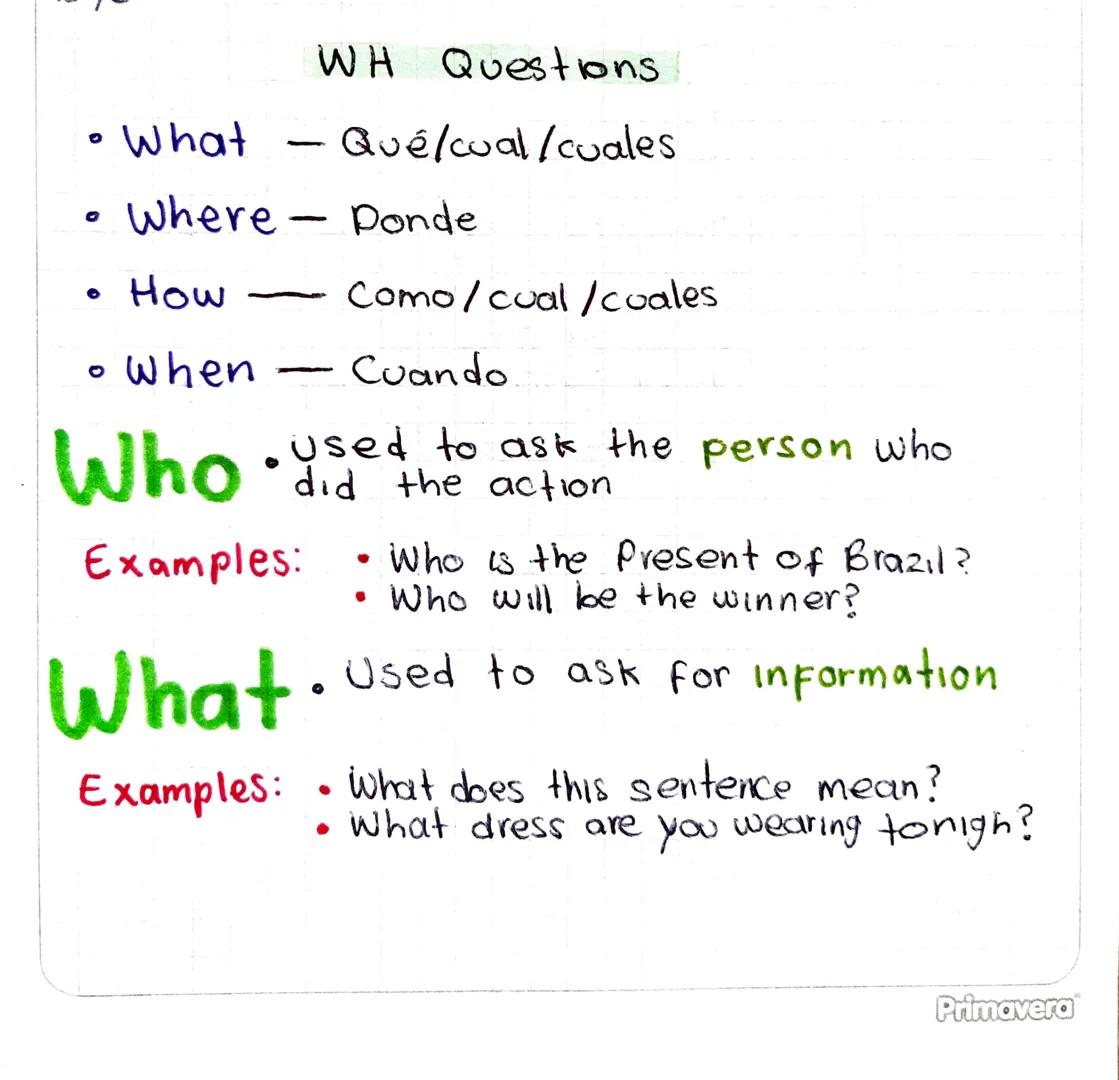 WH Questions
• What — Qué/cual/cuales
• Where — Donde
• How — Como/cual/cuales
• When — Cuando
Who • Used to ask the person who
did the action
Examples: • Who is the Present of Brazil?
• Who will be the winner?
What • Used to ask for information
Examples: • What does this sentence mean?
• What dress are you wearing tonigh?
Primavera